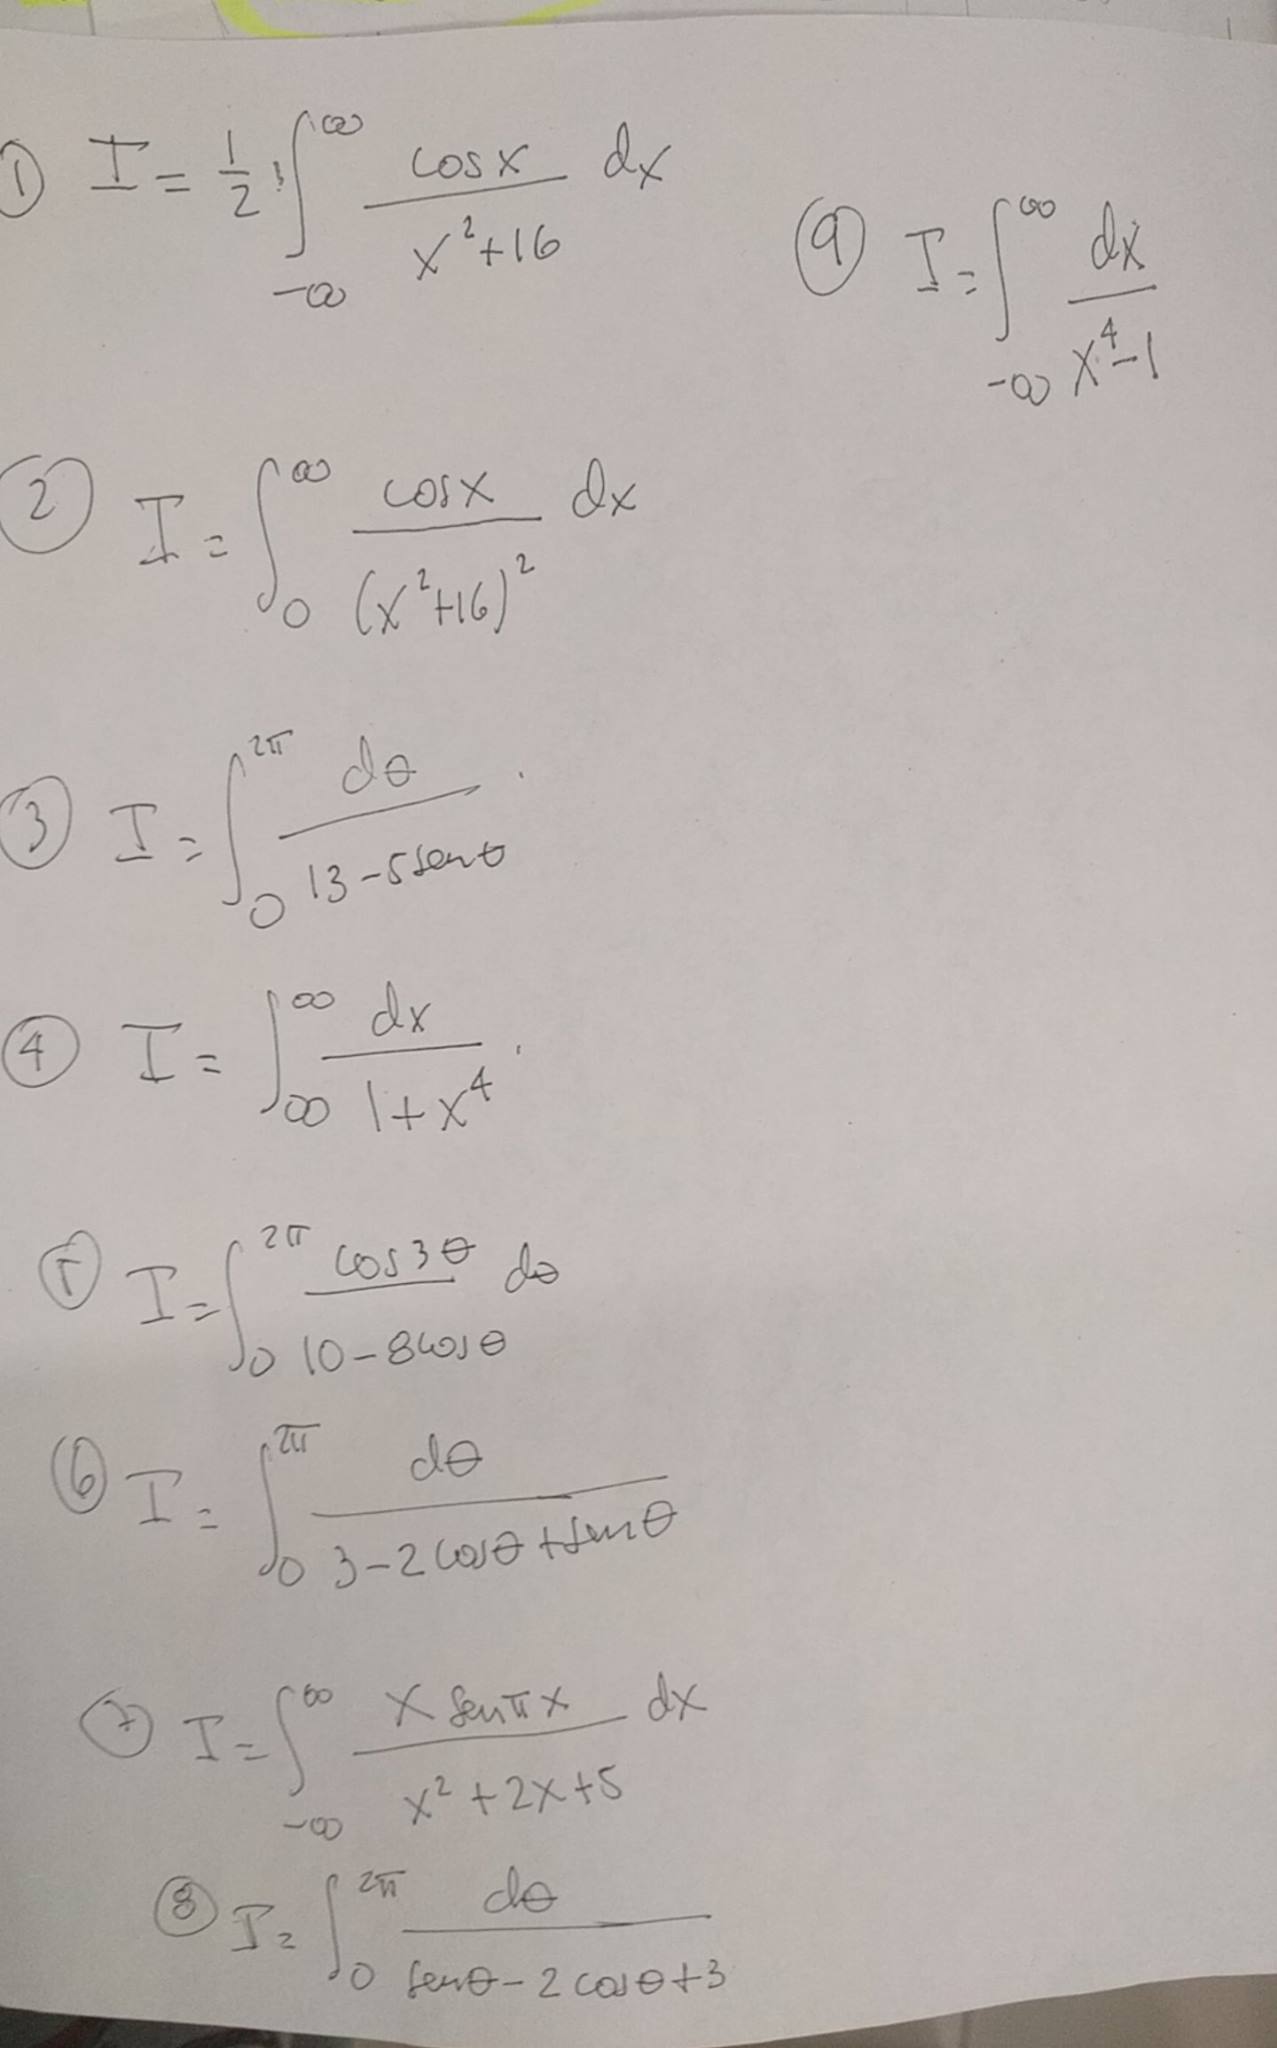 ① I = 1/2 ∫_{-∞}^{∞} cosx/(x²+16) dx
② I = ∫_0^∞ cosx/(x²+16)² dx
③ I = ∫_0^{2π} dθ/(13-5senθ) .
④ I = ∫_∞^∞ dx/(1+x⁴) .
⑤ I = ∫_0^{2π} cos3θ/(10-8cosθ) dθ
⑥ I = ∫_0^{2π} dθ/(3-2cosθ+senθ)
⑦ I = ∫_{-∞}^{∞} x senπx/(x²+2x+5) dx
⑧ I = ∫_0^{2π} dθ/(senθ-2cosθ+3)
⑨ I = ∫_{-∞}^{∞} dx/(x⁴-1)